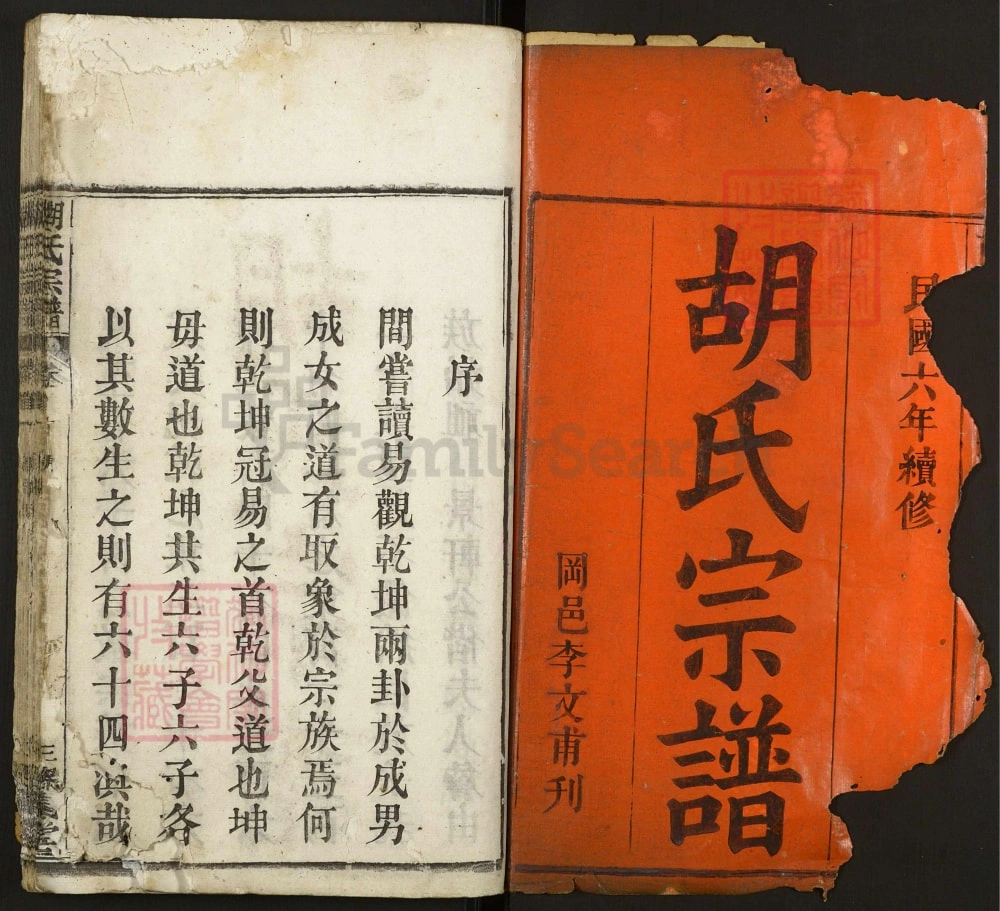 民國六年續修
胡氏宗譜
岡邑李文甫刊
序
間嘗讀易觀乾坤兩卦於成男
成女之道有取象於宗族焉何
則乾坤冠易之首乾父道也坤
毋道也乾坤共生六子六子各
以其數生之則有六十四
胡氏宗譜
FamilySearch